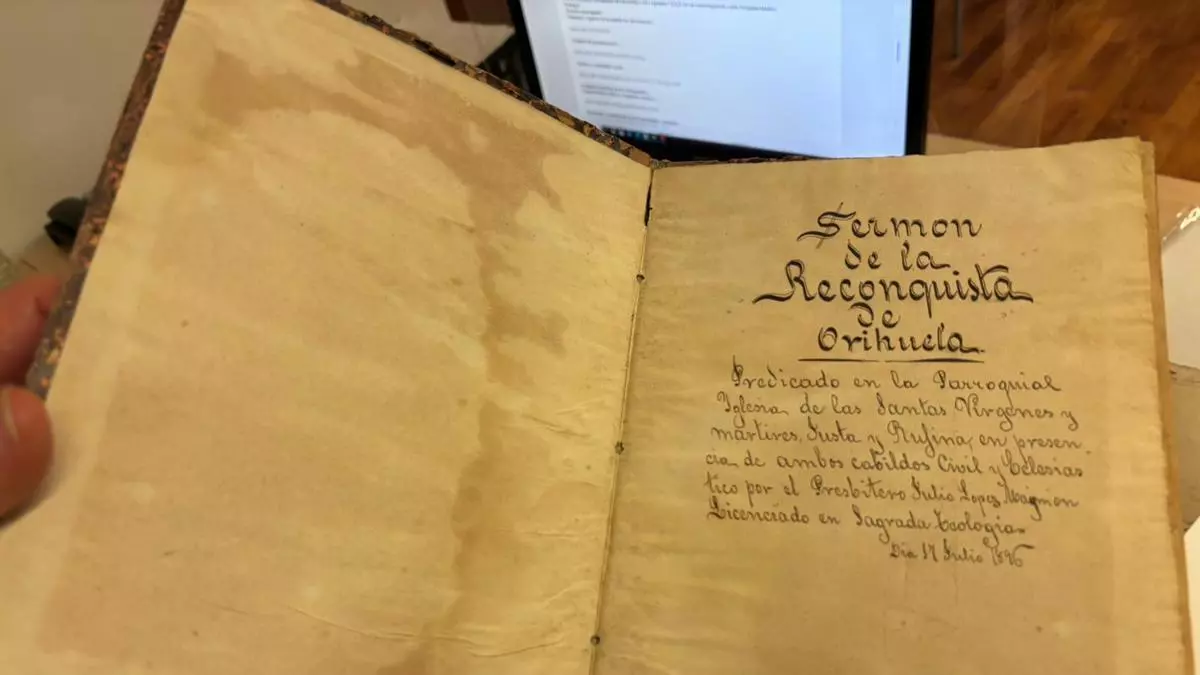 Sermon
de la
Reconquista
de
Orihuela.
Predicado en la Parroquial
Iglesia de las Santas Virgenes y
martires, Justa y Rufina, en presen
cia de ambos cabildos Civil y Eclesias
tico por el Presbitero Julio Lopez Maymon
Licenciado en Sagrada Teologia.
Dia 17 Julio 1896